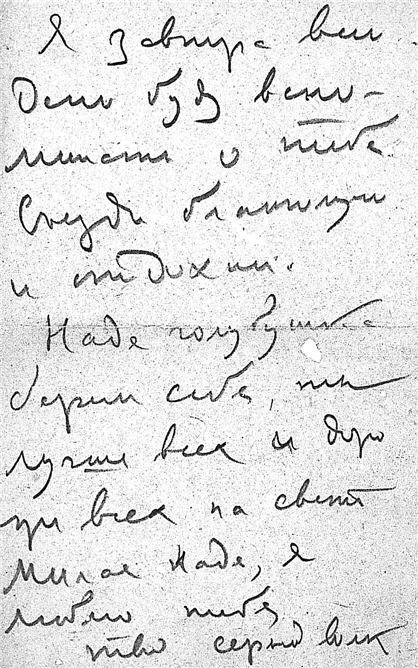 Я завтра весь
день буду вспо-
минать о тебе
Съезди благополучно
и отдохни.
Надя голубушка
береги себя, ты
лучше всех и доро
же всех на свете
Милая Надя, я
люблю тебя
твой серый волк